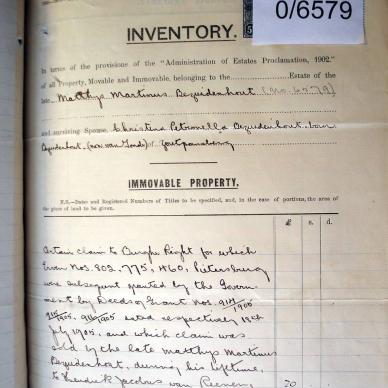 0/6579
INVENTORY.
In terms of the provisions of the "Administration of Estates Proclamation, 1902,"
of all Property, Movable and Immovable, belonging to the Estate of the
late Matthys Martinus Bezuidenhout (No. 6579)
and surviving Spouse Christina Petronella Bezuidenhout born
Bezuidenhout, (now van Tonder) of Zoutpansberg
IMMOVABLE PROPERTY.
N.B.—Dates and Registered Numbers of Titles to be specified, and, in the case of portions, the area of
the piece of land to be given.
£ s. d.
Certain claim to Burgher Right for which
Erven Nos. 802, 775, 460, Pietersburg
were subsequent granted by the Govern-
ment by Deeds of Grant Nos. 914/1905
915/1905, 916/1905 dated respectively 18th
July 1905, and which claim was
sold by the late Matthys Martinus
Bezuidenhout, during his lifetime,
to Hendrik Jacobus van 70